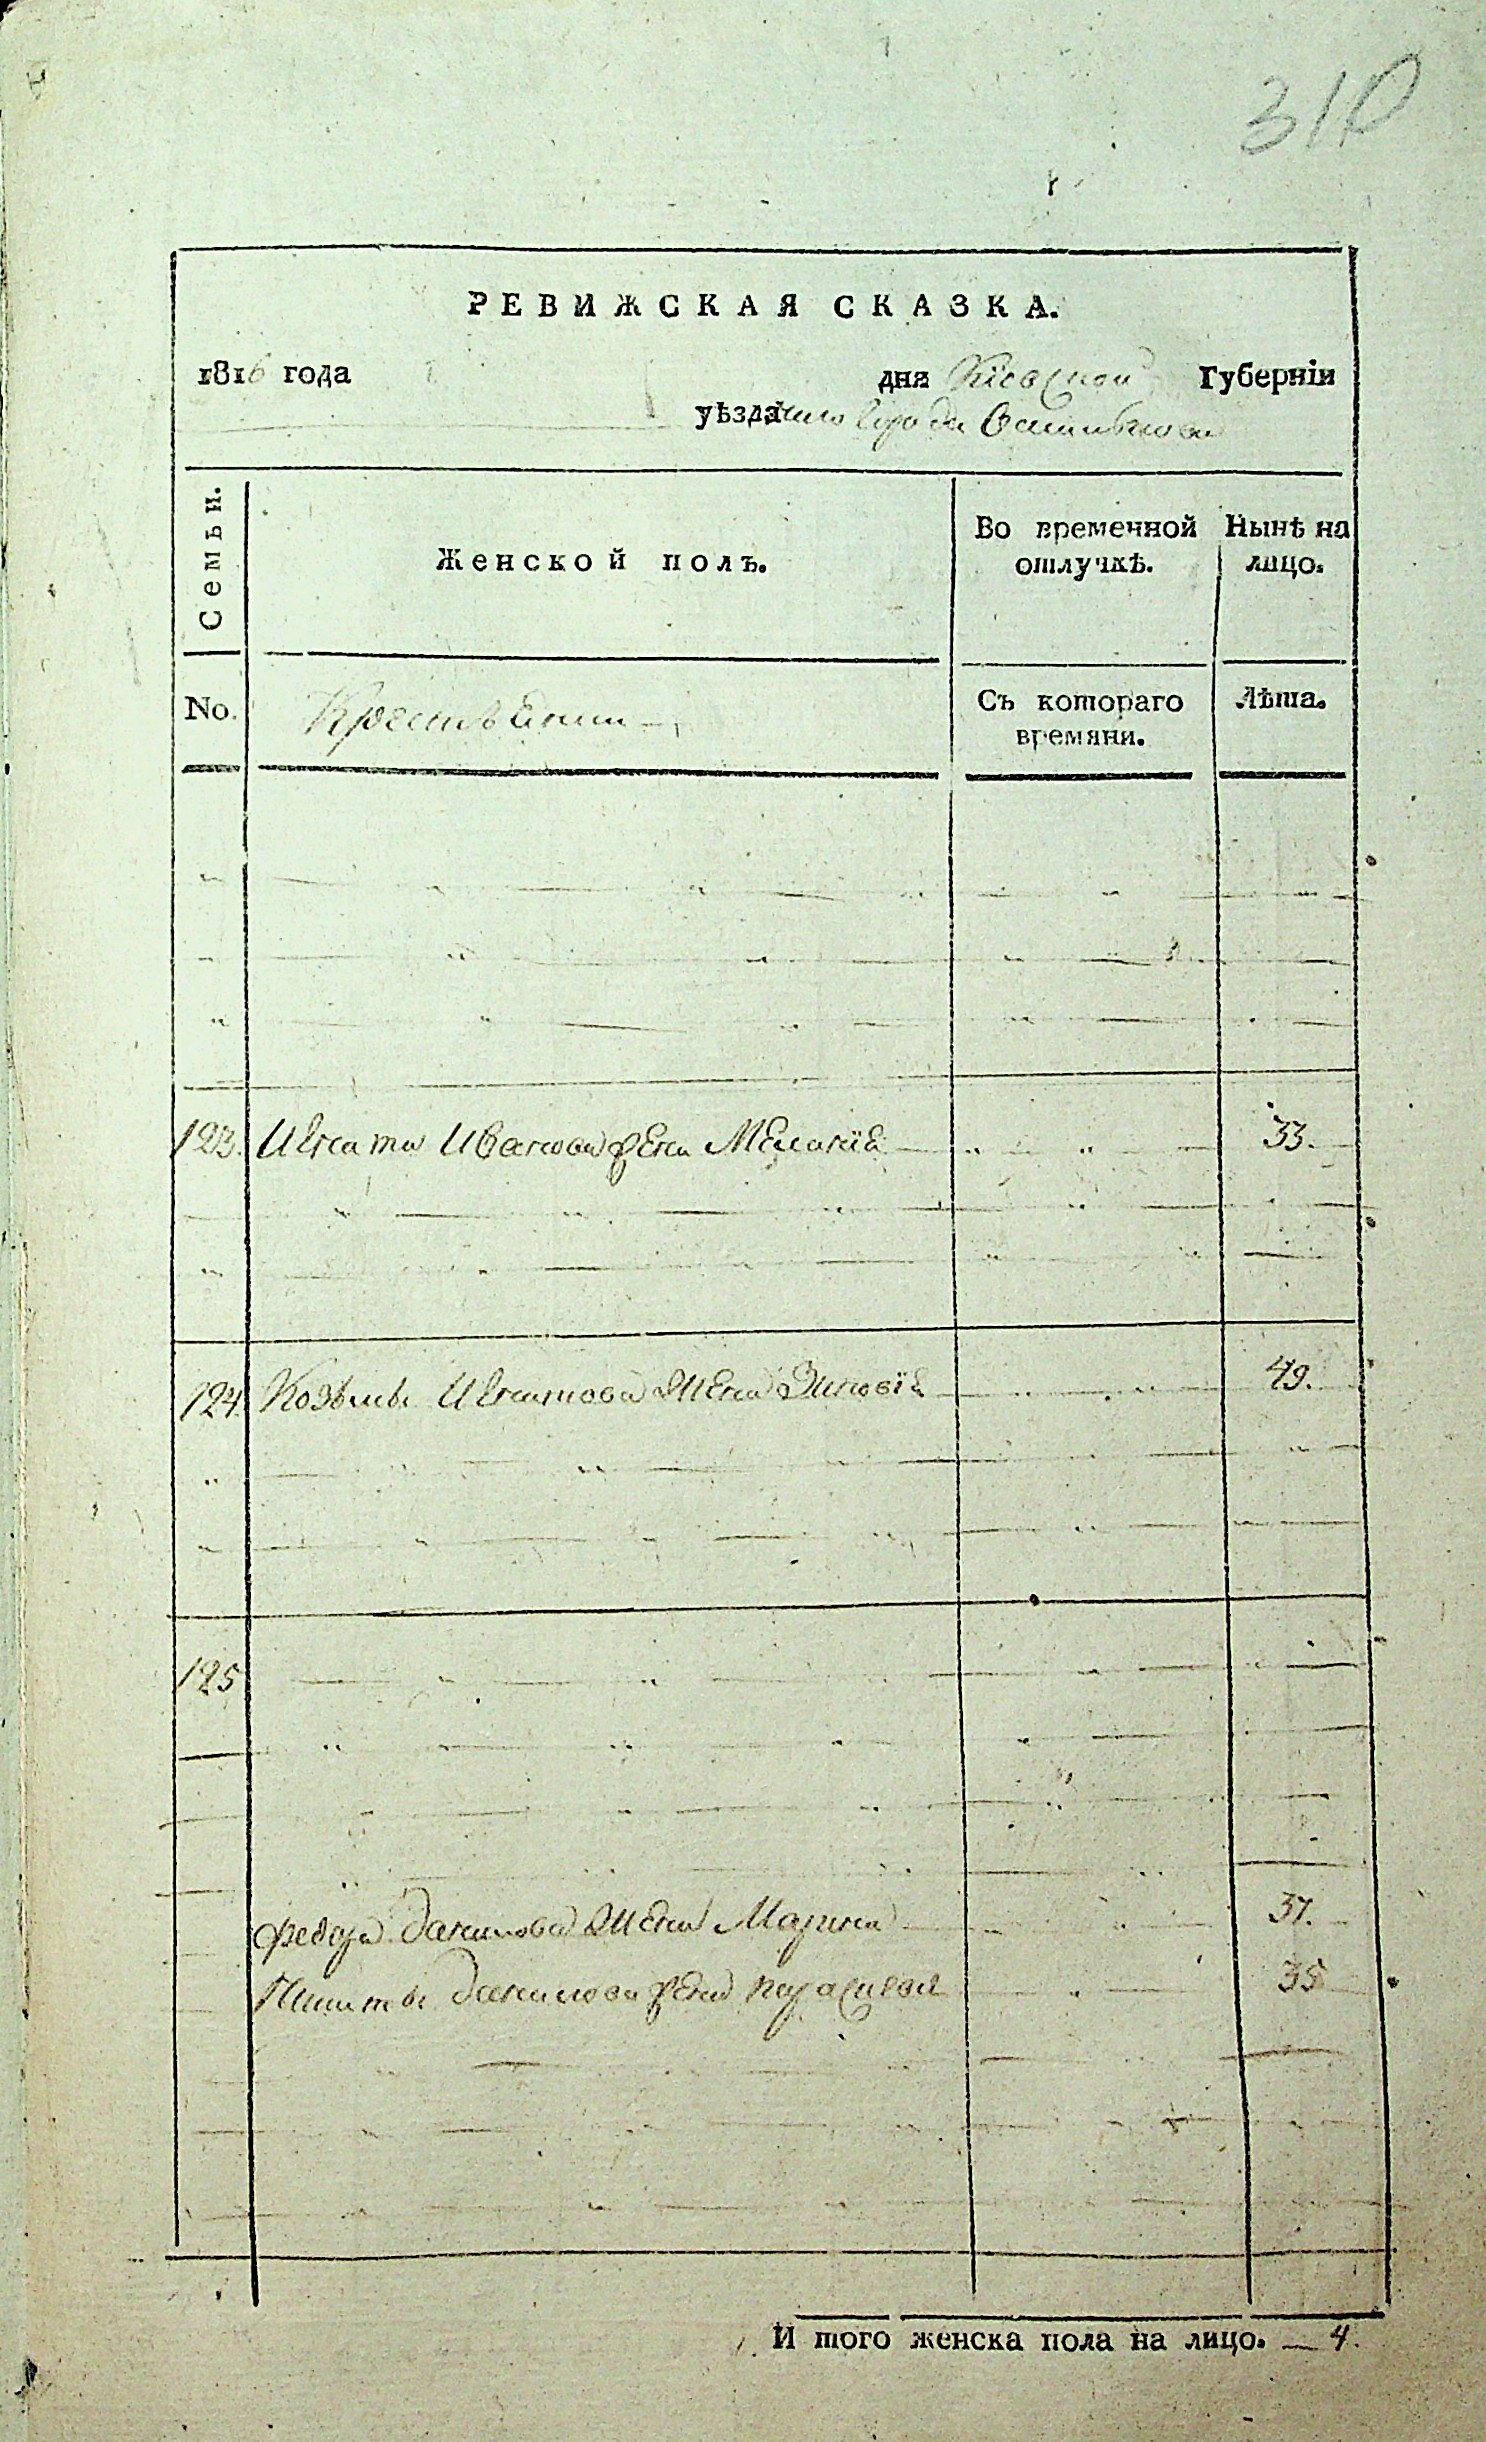 310
РЕВИЖСКАЯ СКАЗКА.
1816 года дня Кіевской Губерніи
уѣзда города Василькова
Семьи. Женской полъ. Во временной отлучкѣ. Нынѣ на лицо.
No. Крестьяни Съ котораго времяни. Лѣта.
123. Игната Иванова жена Меланія 33.
124. Козьмы Игнатова жена Зиновія 49.
125
Федора Данилова жена Марина 37.
Никиты Данилова жена Параскева 35
И того женска пола на лицо. — 4.